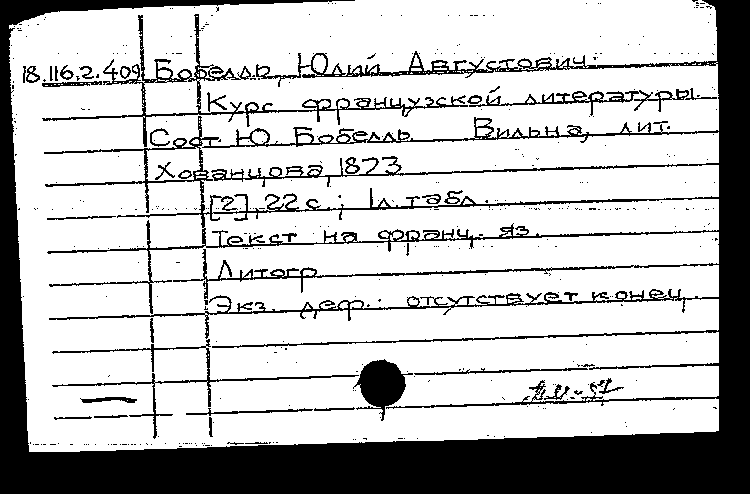 18.116.2.409 Бобелль, Юлий Августович.
Курс французской литературы.
Сост. Ю. Бобелль. Вильна, лит.
Хованцова, 1873
[2], 22 с.; 1 л. табл.
Текст на франц. яз.
Литогр.
Экз. деф.: отсутствует конец.